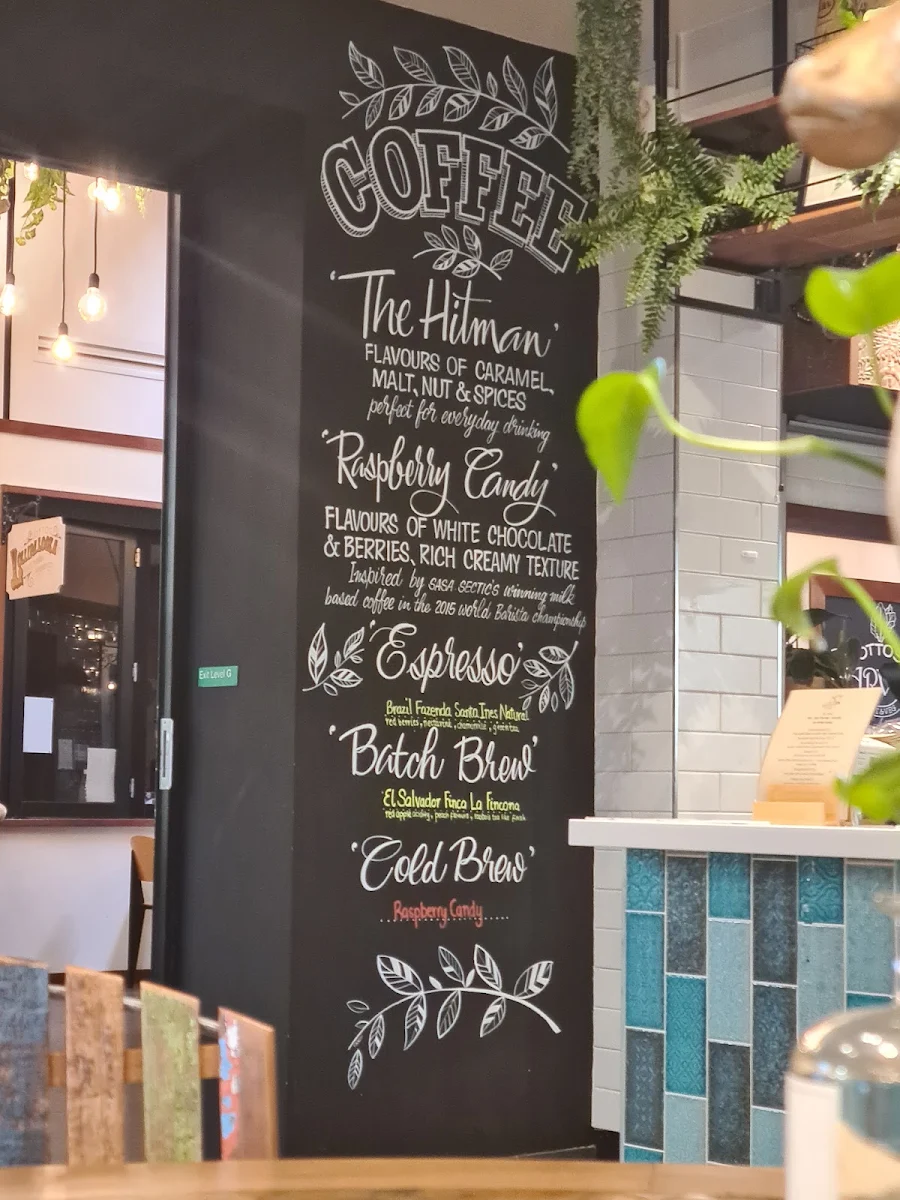 COFFEE
'The Hitman'
FLAVOURS OF CARAMEL,
MALT, NUT & SPICES
perfect for everyday drinking
'Raspberry Candy'
FLAVOURS OF WHITE CHOCOLATE
& BERRIES, RICH CREAMY TEXTURE
Inspired by SASA SECTIC's winning milk
based coffee in the 2015 world Barista championship
'Espresso'
Brazil Fazenda Santa Ines Natural
red berries, nectarine, chamomile, green tea
'Batch Brew'
El Salvador Finca La Fincona
red apple acidity, peach flavours, rooibos tea like finish
'Cold Brew'
Raspberry Candy
Exit Level G